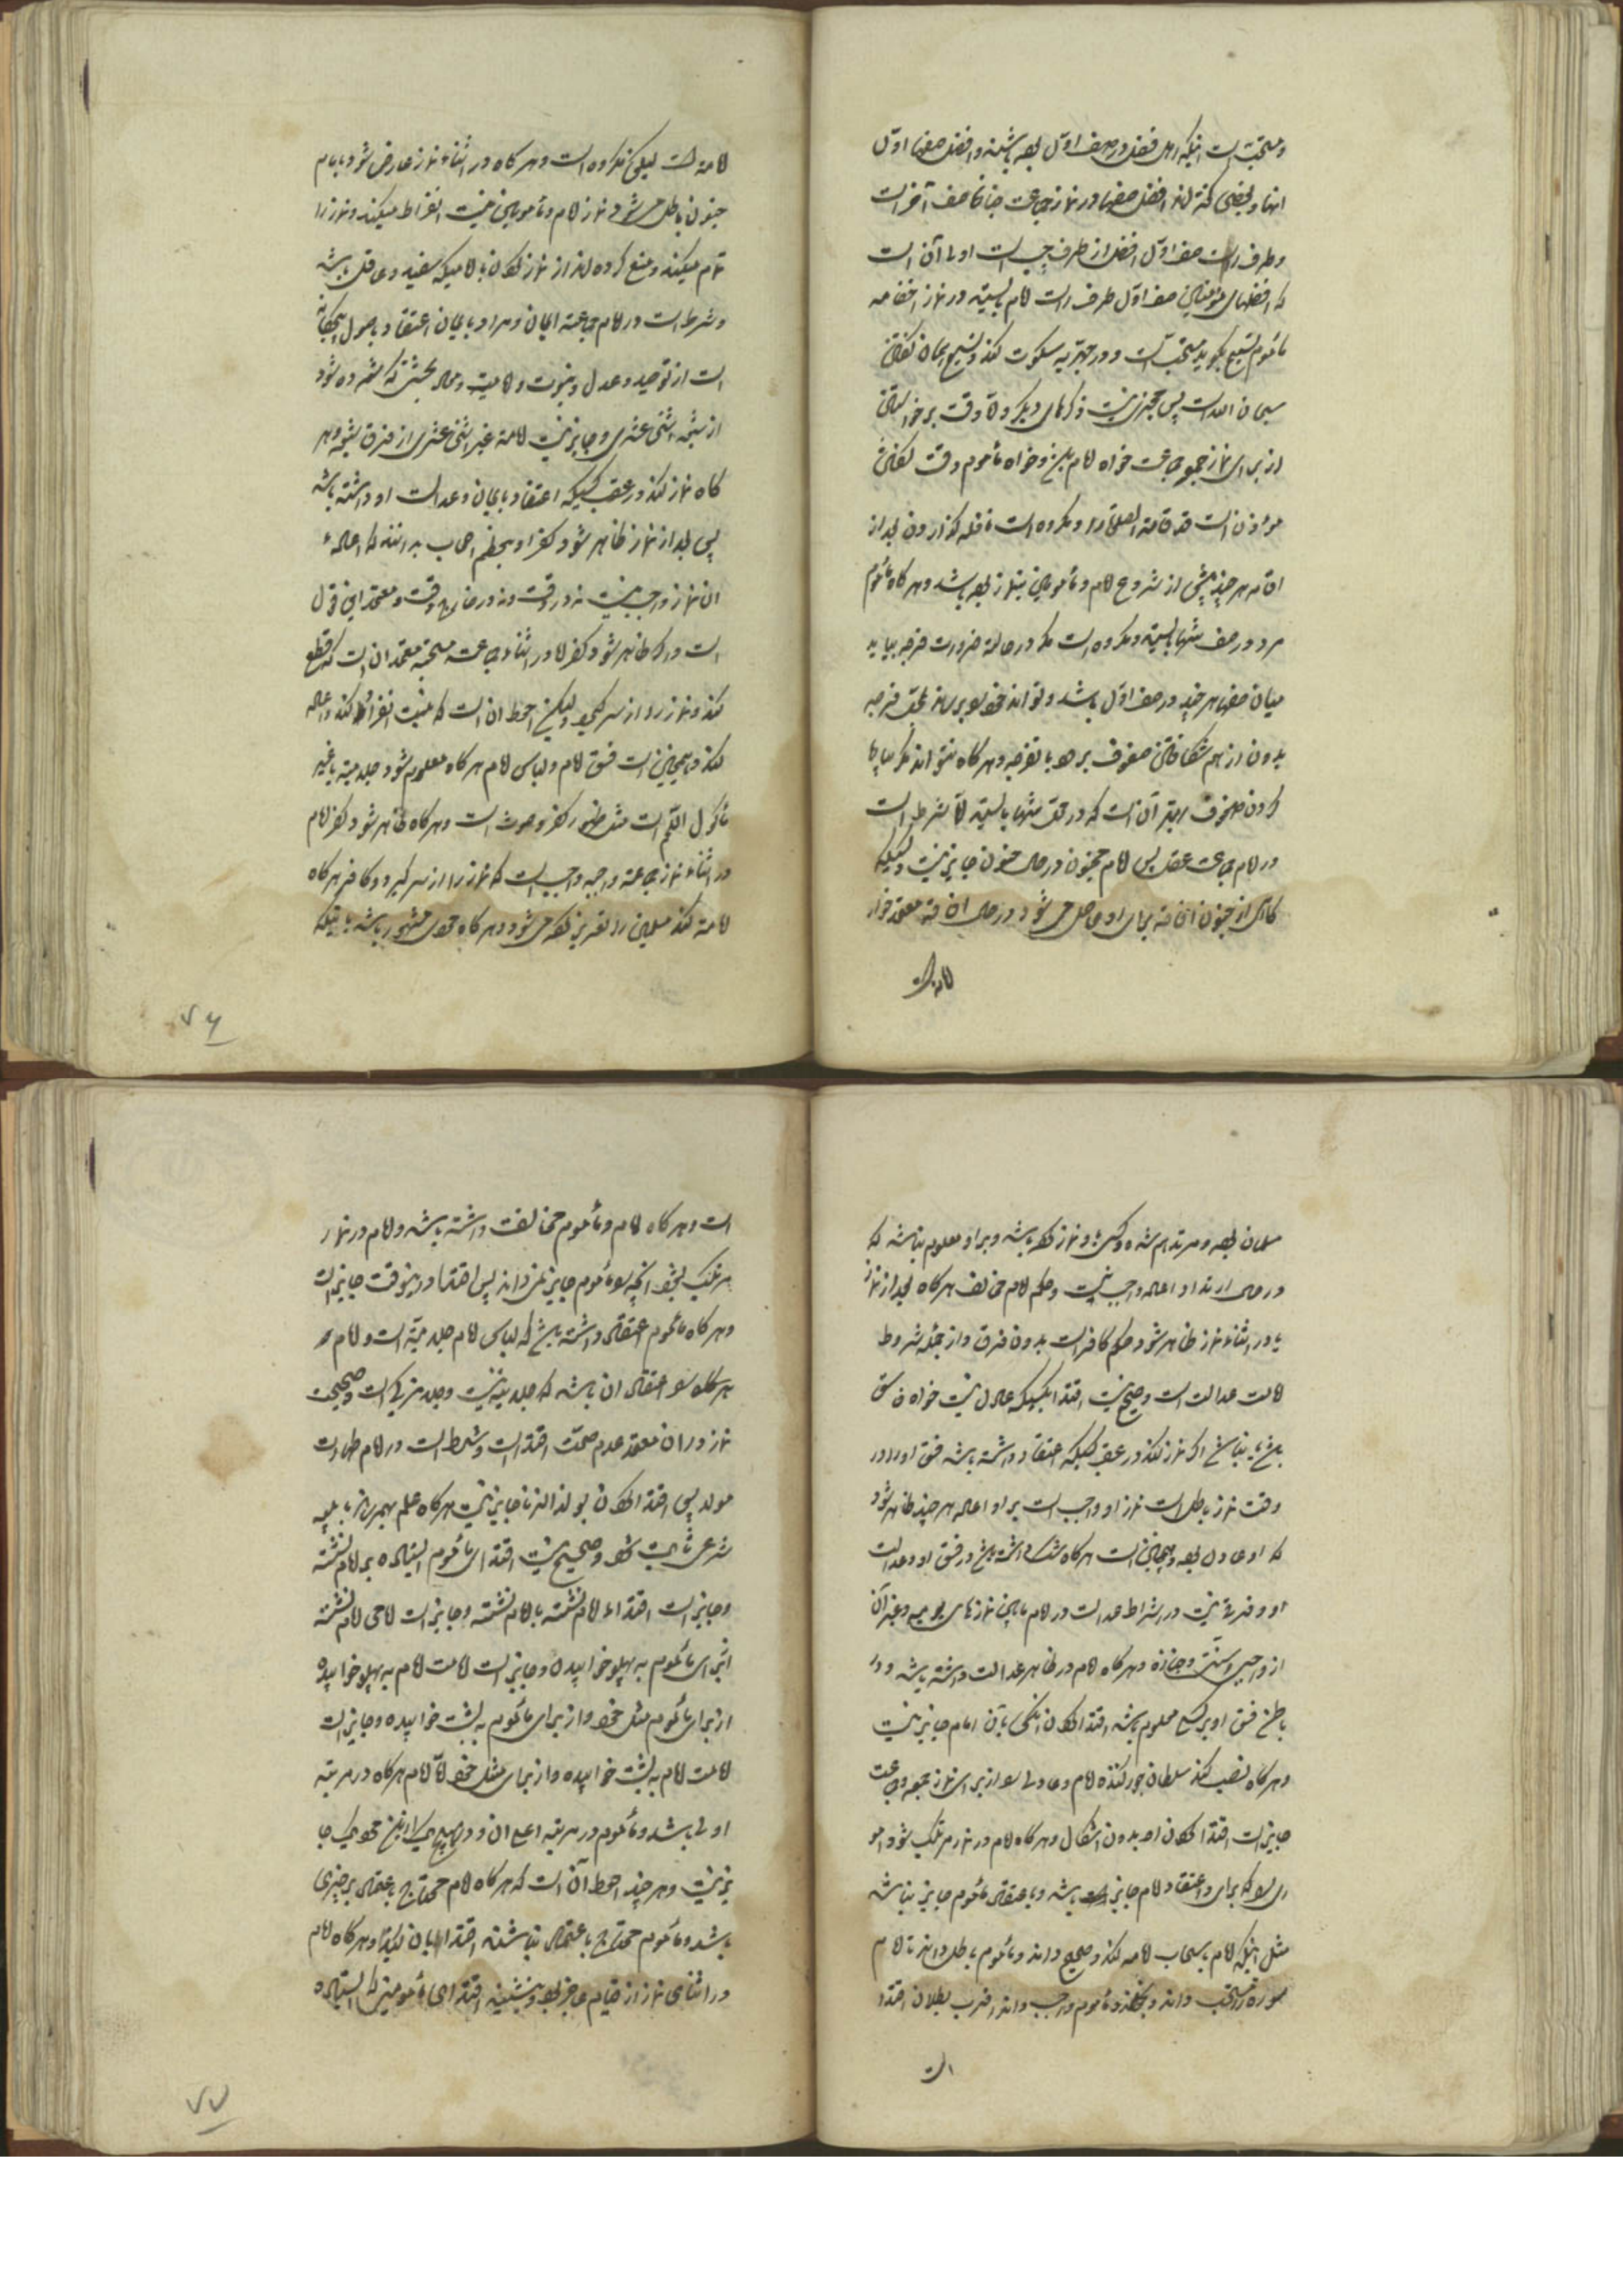 و مستحبست اینکه اهل فضل در صف اول بوده باشند و افضل صفها اول
انها و بعضی گفته اند افضل صفها در نماز جماعت جنازه صف آخر است
و طرف راست صف اول افضل از طرف چپ است اولی آن است
که افضلهای مؤمنین صف اول طرف راست امام بایستند در نماز اخفاتیه
مأموم تسبیح بگوید مستحب است و در جهریه سکوت کند و تسبیح همان گفتن
سبحان الله است پس مجزی نیست ذکرهای دیگر و وقت برخواستن
از برای نماز جمع و جماعت خواه امام باشد و خواه مأموم وقت گفتن
مؤذن است قد قامت الصلوة را و مکروه است نافله گذاردن بعد از
اقامه هر چند پیش از شروع امام و مأمومین بنماز بوده باشد و هر گاه مأموم
مرد در صف تنها بایستد مکروه است مگر در حالة ضرورت فرجه بیابد
میان صفها هر چند در صف اول باشد و تواند خود را برساند بمحل فرجه
بدون از هم شکافتن صفوف برود با نفرجه و هر گاه نتواند مگر بپاره
کردن صفوف بهتر آن است که در محل تنها بایستد اما شرط است
در امام جماعت عقل پس امام مجنون در حال جنون جایز نیست و کسیکه
گاهی از جنون افاقه برای او حاصل می شود در حال افاقه معتمد جواز
امامت
امامت است لیکن مکروه است و هر گاه در اثناء نماز عارض شود با امام
جنون باطل می شود نماز امام و مأمومین نیت انفراد میکنند و نماز را
تمام میکنند و منع کرده اند از نماز کردن با امامیکه سفیه و عاقل باشد
و شرط است در امام جماعة ایمان و مراد بایمان اعتقاد باصول پنجگانه
است از توحید و عدل و نبوت و امامت و معاد بحیثیتی که شمرده شود
از شیعه اثنی عشری و جایز نیست امامة غیر اثنی عشری از فرق شیعه و هر
گاه نماز کند در عقب کسیکه اعتقاد بایمان و عدالت او داشته باشد
پس بعد از نماز ظاهر شود کفر او معظم اصحاب برانند که اعاده
ان نماز واجب نیست نه در وقت و نه در خارج وقت و معتمد این قول
است و اگر ظاهر شود کفر او در اثناء جماعت مستحبه معتمد ان است که قطع
کند و نماز را از سر گیرد ولیکن احوط ان است که نیت انفراد کند و اعاده
کند و همچنین است فسق امام و لباس امام هر گاه معلوم شود جلد میته یا غیر
مأکول اللحم است مثل ظهور کفر و حدث است و هر گاه ظاهر شود کفر امام
در اثناء نماز جماعة واجبه واجب است که نماز را از سر گیرد و کافر هر گاه
امامت کند مسلمین را تعزیر کرده می شود و هر گاه مشهور باشد باینکه
۷۶
مسلمان بوده و مرتد هم شده و کسی باو نماز کرده باشد و بر او معلوم نباشد که
در حال ارتداد او اعاده واجب نیست و حکم امام مخالف هر گاه بعد از نماز
یا در اثناء نماز ظاهر شود حکم کافر است بدون فرق و از جمله شروط
امامت عدالت است و صحیح نیست اقتدا بکسیکه عادل نیست خواه فاسق
باشد یا نباشد اگر نماز کند در عقب کسیکه اعتقاد داشته باشد فسق او را در
وقت نماز باطل است نماز او و واجب است بر او اعاده هر چند ظاهر شود
که او عادل بوده و همچنین است هر گاه شک داشته باشد در فسق او و عدالت
او و فرقی نیست در اشتراط عدالت در امام مابین نمازهای یومیه و غیر آن
از واجبی و سنتی و جنازه و هر گاه امام در ظاهر عدالت داشته باشد و در
باطن فسق او بر کسی معلوم باشد اقتدا کردن آنکس بآن امام جایز نیست
و هر گاه نصب کند سلطان جور کننده امام عادلی را از برای نماز جمعه و جماعت
جایز است اقتدا کردن او بدون اشکال و هر گاه امام در نماز مرتکب شود امو
ری را که برای و اعتقاد امام جایز باشد و باعتقاد مأموم جایز نباشد
مثل اینکه امام باسحاب لامه کند و صحیح داند و مأموم باطل داند یا امام
سوره را مستحب داند و نخواند و مأموم واجب داند اقرب بطلان اقتدا
است
است و هر گاه امام و مأموم مخالفت داشته باشد و امام در نماز
مرتکب نشود انچه را مأموم جایز نمی داند پس اقتدا در اینوقت جایز است
و هر گاه مأموم اعتقاد داشته باشد که لباس امام جلد میته است و امام
را اعتقاد ان باشد که جلد میته نیست و جلد مزکی است و صحیحست
نماز در ان معتمد عدم صحت اقتدا است و شرط است در امام طهارت
مولد پس اقتدا کردن بولد الزنا جایز نیست هر گاه علم بهم رساند یا ببینه
شرعی ثابت شود و صحیح نیست اقتدای مأموم ایستاده بر امام نشسته
و جایز است اقتداء امام نشسته بامام نشسته و جایز است امامت امام نشسته
از برای مأموم به پهلو خوابیده و جایز است امامت امام به پهلو خوابیده
از برای مأموم مثل خود و از برای مأموم به پشت خوابیده و جایز است
امامت امام به پشت خوابیده و از برای مثل خود اما امام هر گاه در مرتبه
ادنی باشد و مأموم در مرتبه اعلی ان و در هیچیک از این نحو یک جا
یز نیست و هر چند احوط آن است که هر گاه امام محتاج باعتماد بر چیزی
باشد و مأموم محتاج باعتماد نباشد اقتدا بان نکند و هر گاه امام
در اثنای نماز از قیام عاجز بوده و بنشیند اقتدای مأمومین که ایستاده
۷۷